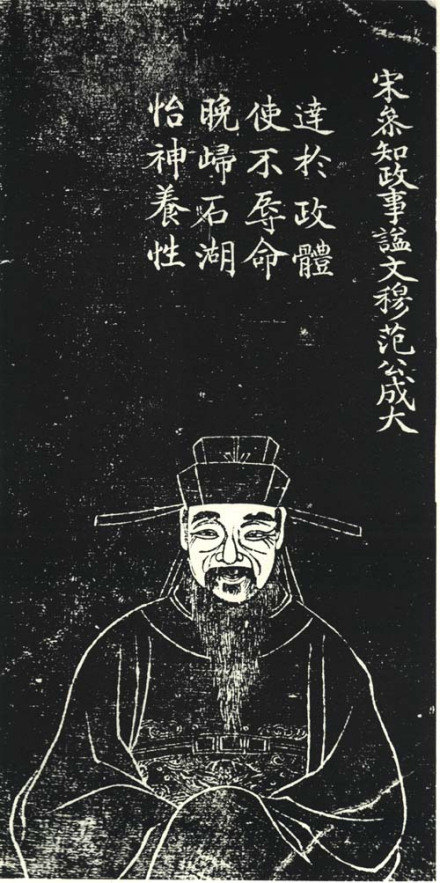 宋叅知政事謚文穆范公成大
達於政體
使不辱命
晚歸石湖
怡神養性